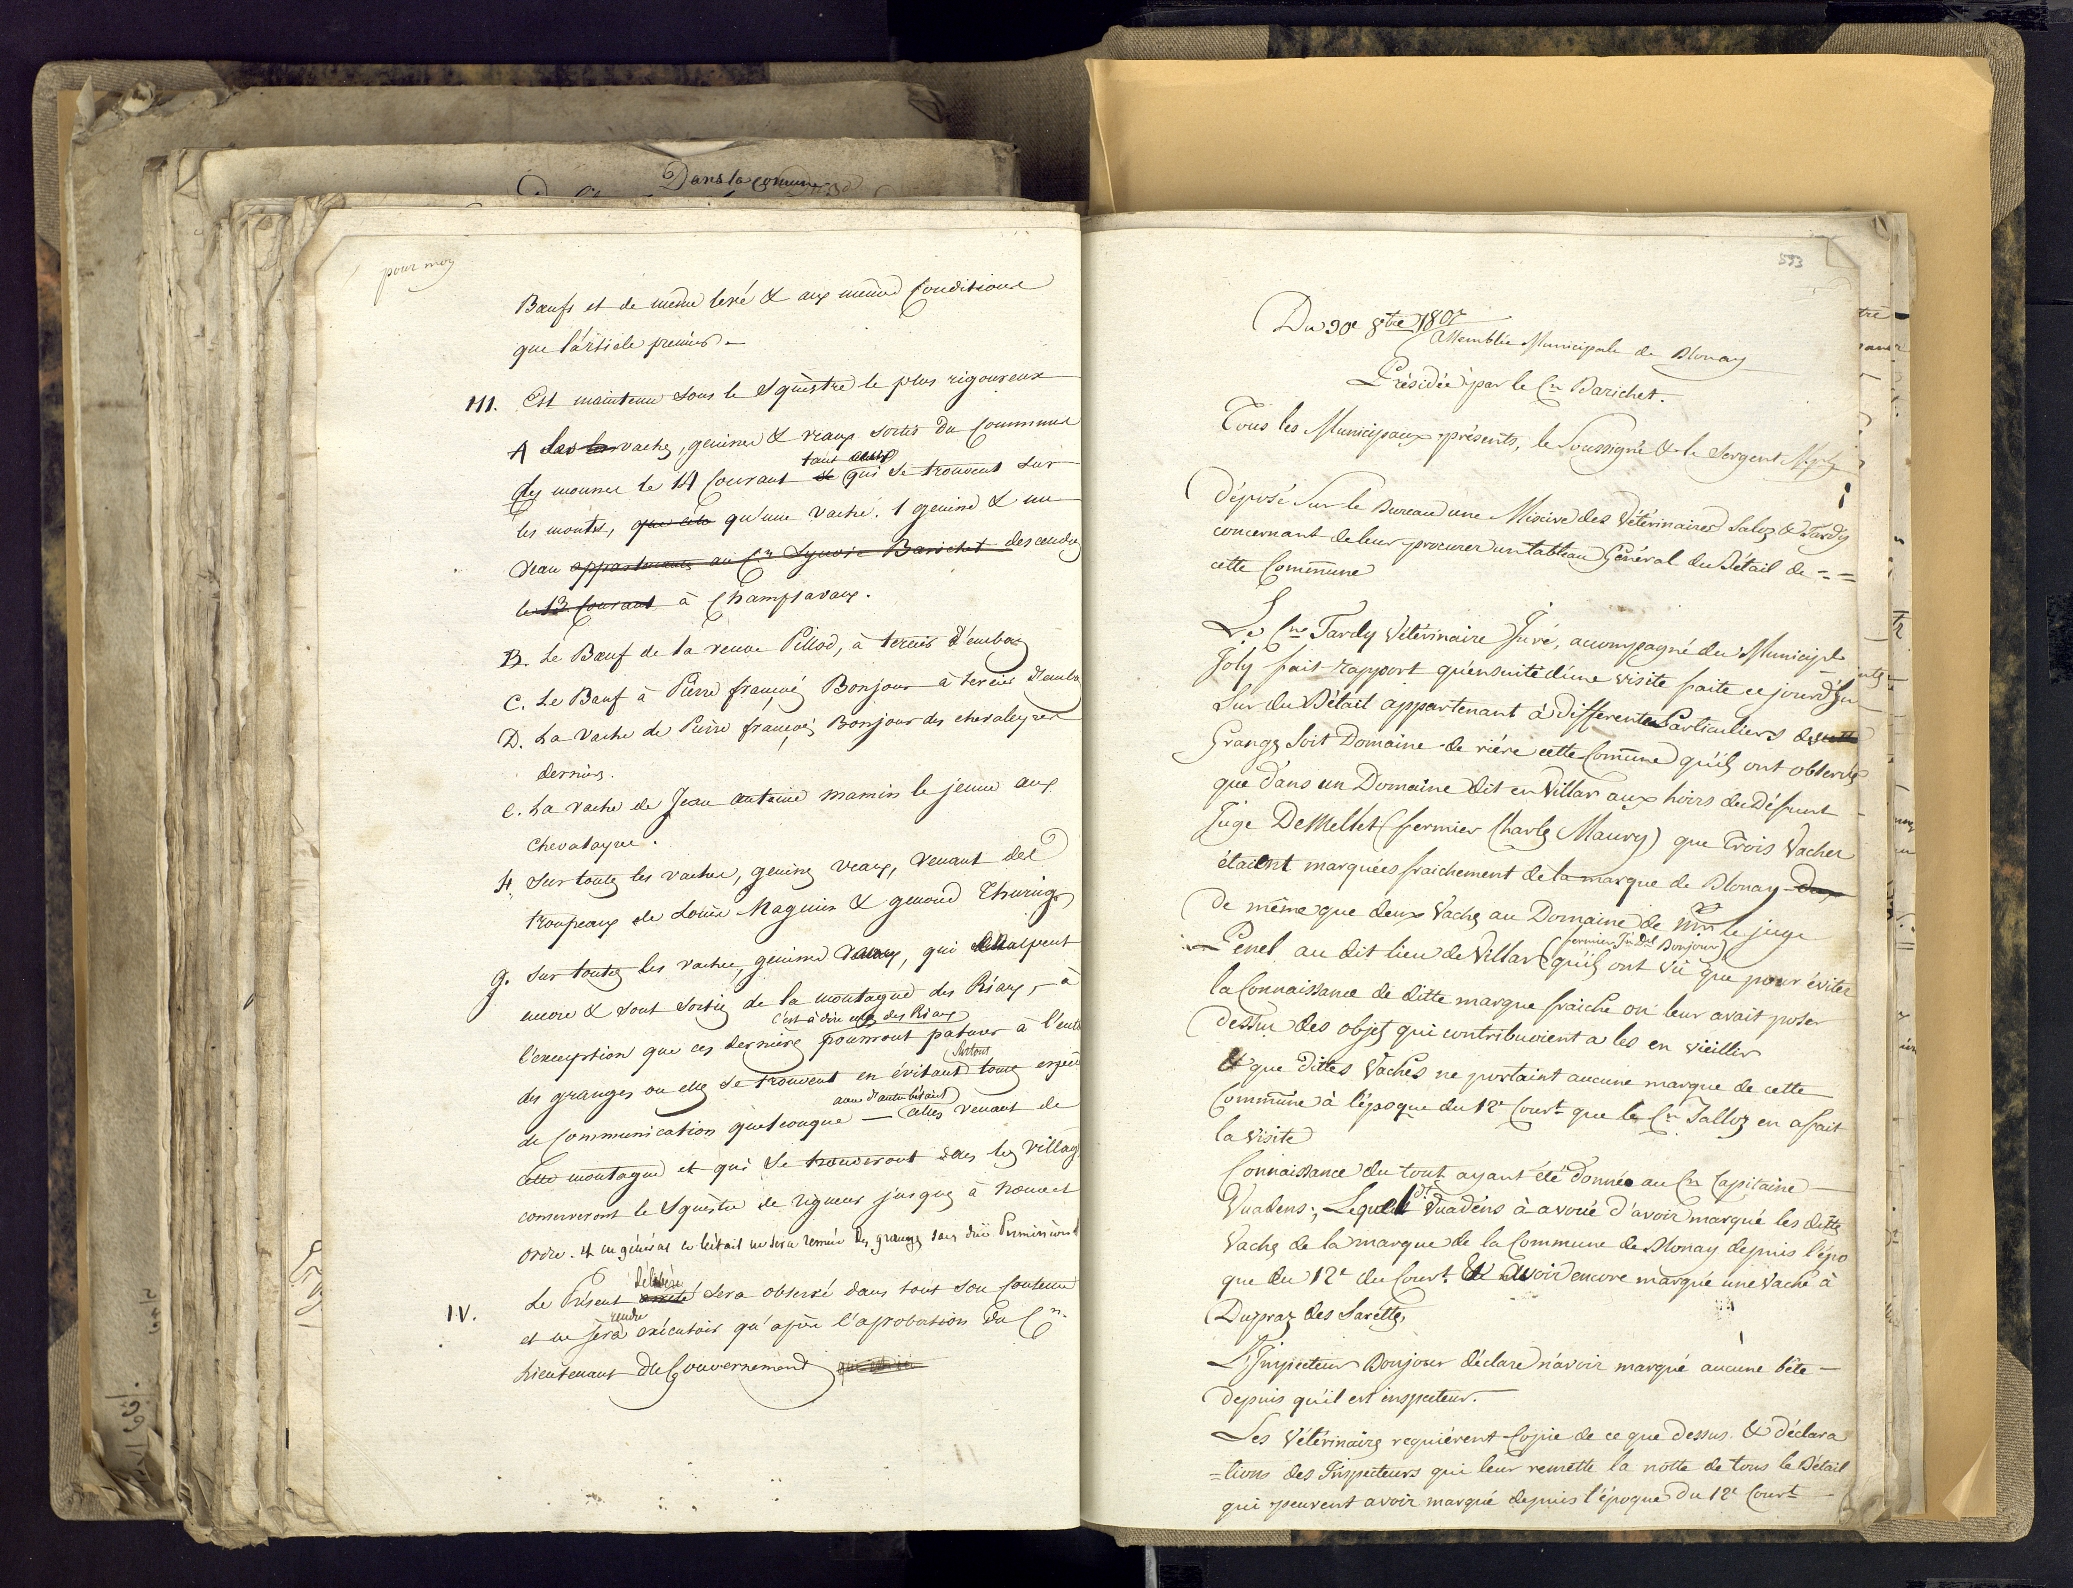 Dans la comune
pour moy
Bœufs et de meme levé & aux mêmes Conditions
que l'article premier.
III. Est maintenu sous le Sequèstre le plus rigoureux
A Les les vaches, genisses & veaux sortis du Commune
des mounes le 14 Courant tant qui se trouvent sur
les monts, que cela qu'une vache. 1 genisse & un
Veau appartenants au Cn Barichet descendus
le 13 Courant à Champsavaux.
B. Le Bœuf de la veuve Pillod, à tercier d'embas
C. Le Bœuf à Pierre françois Bonjour à tercier d'embas
D. La vache de Pierre françois Bonjour des chevaleyres
dernier.
E. La vache de Jean antoine mamin le jeune aux
Chevalayre.
Sur toutes les vaches, genisses veaux, venant des
troupeaux de Louis Magnin & genoud Thuring
g. Sur toutes les vaches, genisses veaux, qui alpent
encore & sont sortis de la montagne des Riaux, à
c'est à dire celles des Riaux
l'exception que ces dernières pourront paturer à l'entour
des granges ou elles se trouvent en évitant surtout toute espèce
de Communication quelconque avec d'autre bétail celles venant de
Cette montagne et qui se trouveront dans les villages
conserveront le Sequestre de rigueur jusques à nouvel
ordre. & en général le bétail ne sera remué des granges sans due Permission
IV. Le Présent délibéré arreté sera observé dans tout son Contenu
et ne sera rendu exécutoir qu'après l'aprobation du Cn
Lieutenant Du Gouvernement
533
Du 30e 8bre 1802
Assemblée Municipale de Blonay
Présidée par le Cn Barichet.
Tous les Municipaux présents, le Soussigné & le Sergent
Déposé sur le Bureau une Missive des Vétérinaires Saloz & Tardy
concernant de leur procurer un tableau Général du Bétail de
cette Commune
Le Cn Tardy Vétérinaire Juré, accompagné du Municipl
Joly fait rapport qu'ensuite d'une visite faite ce jourd'hu
Sur du Bétail appartenant à differentes Particuliers de cette
Granges soit Domaine de riére cette Comune qu'ils ont observés
que dans un Domaine dit en Villar aux hoirs du Défunt
Juge DeMellet (fermier Charles Maury) que Trois Vaches
étaient marquées fraichement de la marque de Blonay
De même que deux Vaches au Domaine de Mr le juge
Penel au dit lieu de Villar (fermier Jn Dd Bonjour) qu'ils ont vu que pour éviter
la Connaissance de ditte marque fraiche on leur avait poser
Dessus des objets qui contribuoient a les en vieillir
& que Dittes Vaches ne portaint aucune marque de cette
Commune à l'époque du 12e Court que le Cn Salloz en a fait
la visite
Connaissance du tout ayant été donnée au Cn Capitaine
Vuadens; Lequel dt Vuadens à avoué d'avoir marqué les dittes
Vaches de la marque de la Commune de Blonay depuis l'épo
que du 12e du Court. & Avoir encore marqué une Vache à
Dupraz des Sarettes
L'Inspecteur Bonjour déclare n'avoir marqué aucune bête
depuis qu'il est inspecteur.
Les Vétérinaires requiérent Copie de ce que dessus & déclara
=tions des Inspecteurs qui leur remette la notte de tous le Bétail
qui peuvent avoir marqué depuis l'époque du 12e Court